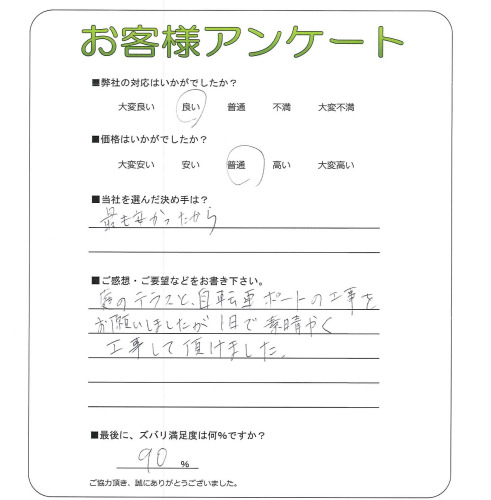 お客様アンケート
■弊社の対応はいかがでしたか？
大変良い　良い　普通　不満　大変不満
■価格はいかがでしたか？
大変安い　安い　普通　高い　大変高い
■当社を選んだ決め手は？
最も安かったから
■ご感想・ご要望などをお書き下さい。
庭のテラスと、自転車ポートの工事を
お願いしましたが1日で素晴やく
工事して頂けました。
■最後に、ズバリ満足度は何%ですか？
90 %
ご協力頂き、誠にありがとうございました。